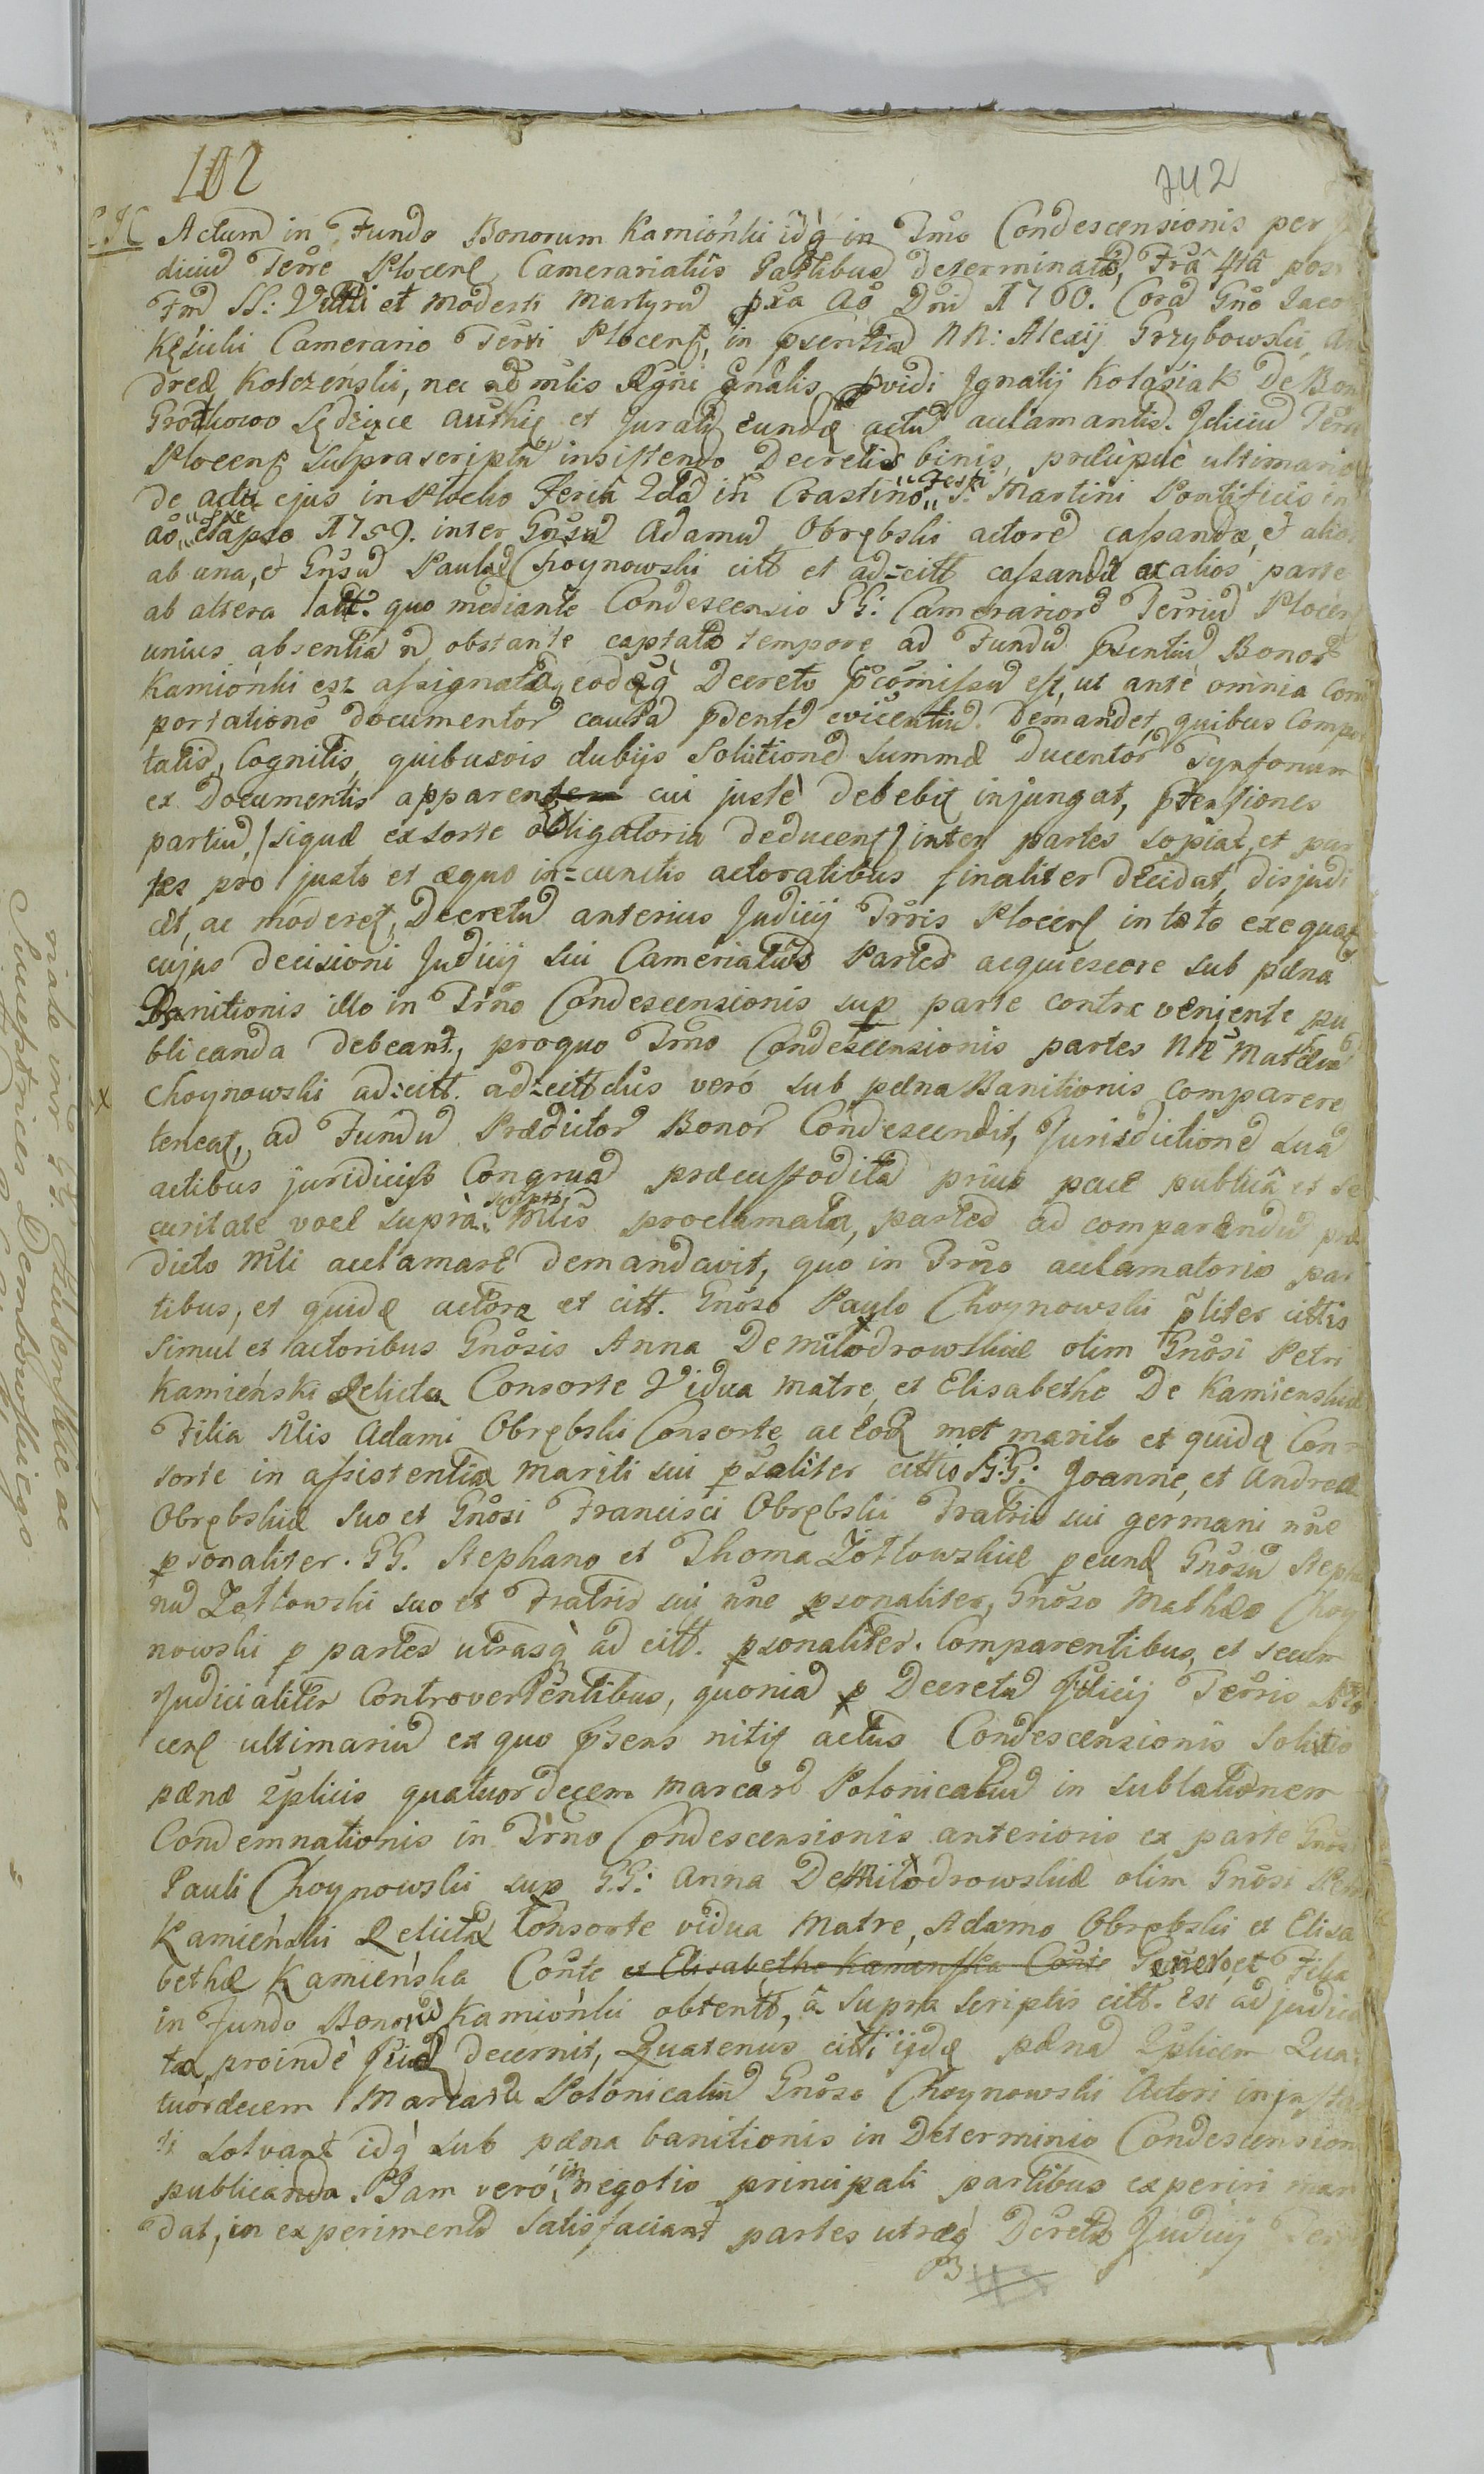 102
742
Actum in Fundo Bonorum Kamionki idq̀ in Tmo Condescensionis per
diciud Terre Plocens Camerariatus Partibus determinato, Fra 4ta post
Fm SS: Viti et Modesti Martyrum pxa Ao Dni 1760. Cora Gno Jaco
Camerario Terri Plocens, in psentia NN: Alexij Grzybowski, An
dreæ Kolczenski, nec ad mlis Regni Gnalis pvidi Ignatij Kołasiak De Bon
et jurati eunde actu aclamantis. Judiciu Terr
Plocens supra scriptu insistendo Decretis binis, præcipuè ultimario
de actu ejus in Plocko Feria 2da in Crastino Festi S. Martini Pontificis in
ao elapso 1759. inter Gnsu Adamu Obrębski actore cassandæ, et alios
ab una, et Gnsu Paulu Choynowski citt et ad-citt cassandu et alios parte
ab altera latt. quo mediante Condescensio GG: Camerarioru Terriu Plocens
unius absentia n obstante captato tempore ad Fundu psentiu Bonor
Kamionki est assignata, eodeq̀ Decreto pcomissu est, ut ante omnia Com
portatione documentor causa pdente evicentiu demandet, quibus Compor
tatis, Cognitis, quibusvis dubijs Solutione summæ Ducentor Tynfonum
ex Documentis apparen cui justè debebit injungat, ptensiones
partiu, /siquæ ex sorte obligatoria deducens/ inter partes sopiat, et par
tes pro justo et æquo in-cunctis actoratibus finaliter decidat, disjudi
cet, ac moderet, Decretu anterius Judicij Trris Plocens in toto exequat
cujus decisioni Judicij sui Cameriatus Partes acquiescere sub pæna
Banitionis illo in Trno Condescensionis sup parte contra veniente pu
blicanda debeant, pro quo Tmo Condescensionis partes Mathæus
x Choynowski ad-citt. ad-cittdus vero sub pæna Banitionis comparere
teneat, ad Fundu Prædictor Bonor Condescendit, Jurisdictione sua
actibus juridicis Congrua præcustodita prius pace publica et se
curitate voce supra scripti Mlis proclamata, partes ad comparendu præ
dicto Mli aclamare demandavit, quo in Trno aclamatorio par
tibus, et quide actora et citt. Gnoso Paulo Choynowski pliter cittis
simul et actoribus Gnosis Anna De Miłodrowskie olim Gnosi Petri
Kamieński Relicta Consorte Vidua Matre, et Elisabethe De Kamienskie
Filia Nlis Adami Obrębski Consorte ac eod met marito et quide Con
sorte in assistentia mariti sui psaliter cittis GG: Joanne, et Andrea
Obrębskie suo et Gnosi Francisci Obrębski Fratris sui germani nne
psonaliter. GG. Stephano et Thoma Żółtowskie p eund Gnosu Stepha
nu Żółtowski suo et Fratris sui nne psonaliter, Gnoso Mathæo Choy
nowski p partes utrasq̀ ad citt. psonaliter. Comparentibus, et secum
Judicialiter Controvertentibus, quonia p Decretu Judicij Terris Plo
cens ultimariu ex quo psens nitit actus Condescensionis Solutio
pænæ 2plicis quatuordecem marcaru Polonicaliu in sublationem
Condemnationis in Trno Condescensionis anterioris ex parte Gnosi
Pauli Choynowski sup GG: Anna De Miłodrowskie olim Gnosi Petri
Kamieński Relicta Consorte vidua Matre, Adamo Obrębski et Elisa
bethæ Kamieńska Conte et Elisabetha Kamenska Conte Genero et Filia
in Fundo Bonoru Kamionki obtentt, a supra scriptis citt. est adjudica
ta, proindè Jud decernit, Quatenus citti ijde pæna 2plicem Qua
tuordecem Marcaru Polonicaliu Gnoso Choynowski Actori injusta
ti solvant idq̀ sub pæna banitionis in Determinio Condescension
publicanda. Jam vero in negotio principali partibus experiri man
dat, in experimento satisfaciant partes utræq̀ Decreto Judicij Terr
niale inr GG.
Succeptrices Dembowskiego